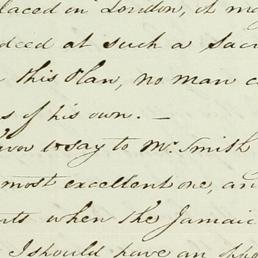 placed in London, it ma
deed at such a Sac
this Plan, no man c
s of his own. —
avor & say to Mr. Smith
most excellent one, an
nts when the Jamaic
I should have an oppo